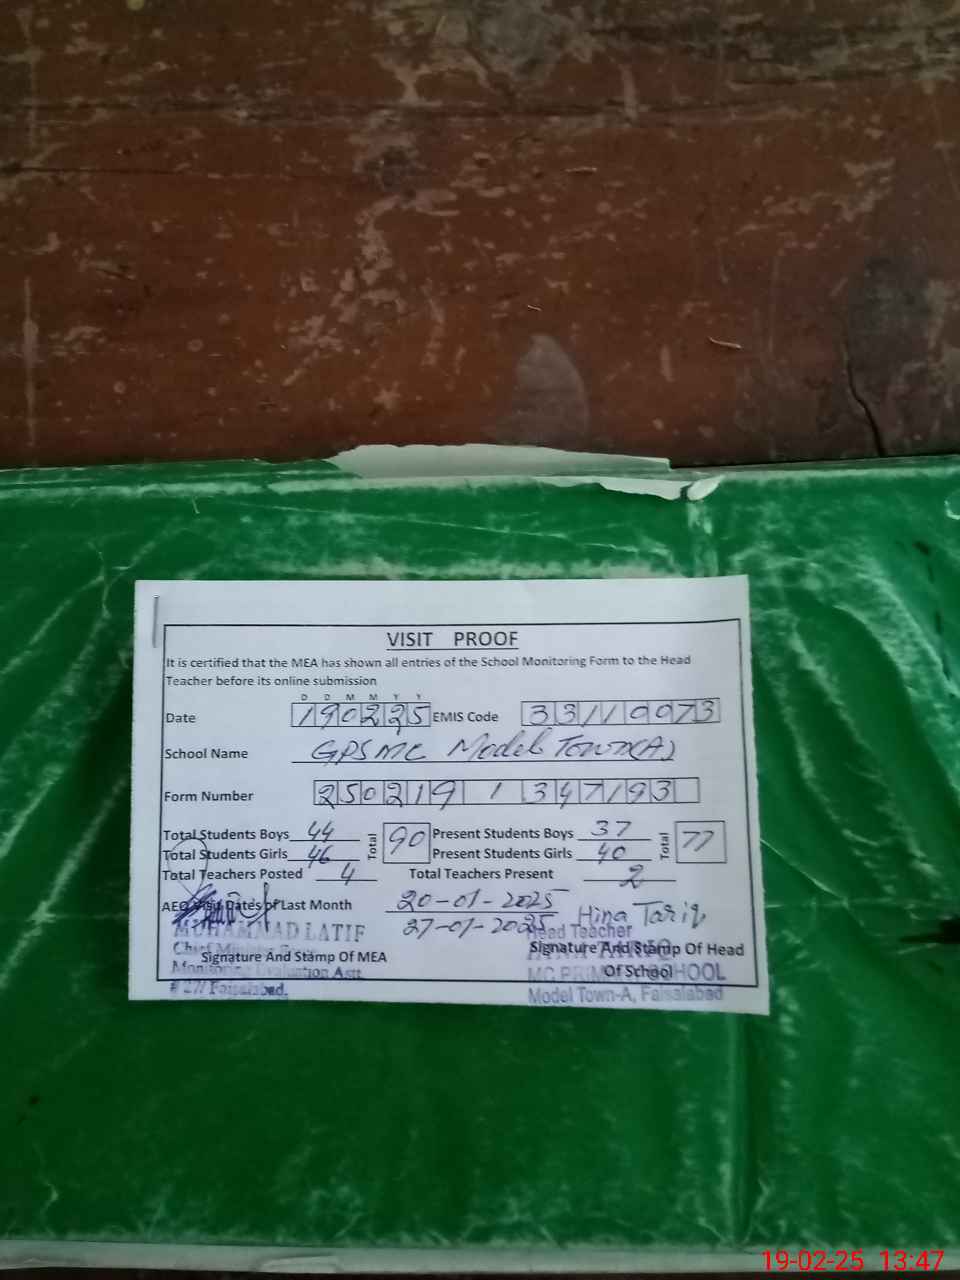 VISIT PROOF
It is certified that the MEA has shown all entries of the School Monitoring Form to the Head
Teacher before its online submission
D D M M Y Y
Date 190225 EMIS Code 33110073
School Name GPS MC Model Town(A)
Form Number 250219 1 347193
Total Students Boys 44 Total 90 Present Students Boys 37 Total 77
Total Students Girls 46 Present Students Girls 40
Total Teachers Posted 4 Total Teachers Present 2
AEO Visit Dates of Last Month 20-01-2025
27-01-2025 Hina Tariq
MUHAMMAD LATIF Head Teacher
Signature And Stamp Of MEA Signature And Stamp Of Head
Of School
Monitoring Evaluation Astt. MC PRIMARY SCHOOL
# 27/ Faisalabad. Model Town-A, Faisalabad
19-02-25 13:47